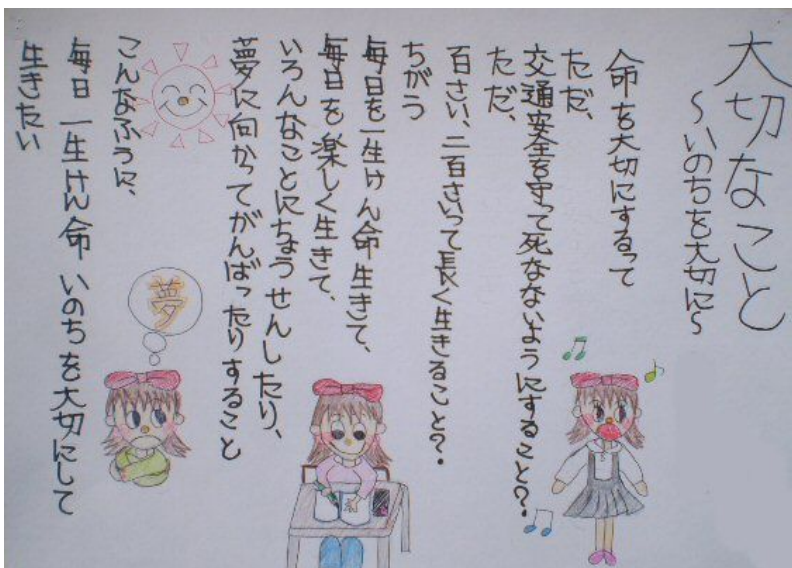 大切なこと
～いのちを大切に～
命を大切にするって
ただ、
交通安全を守って死なないようにすること？
ただ、
百さい、二百さいって長く生きること？
ちがう
毎日を一生けん命生きて、
毎日を楽しく生きて、
いろんなことにちょうせんしたり、
夢に向かってがんばったりすること
こんなふうに、
毎日一生けん命いのちを大切にして
生きたい
夢